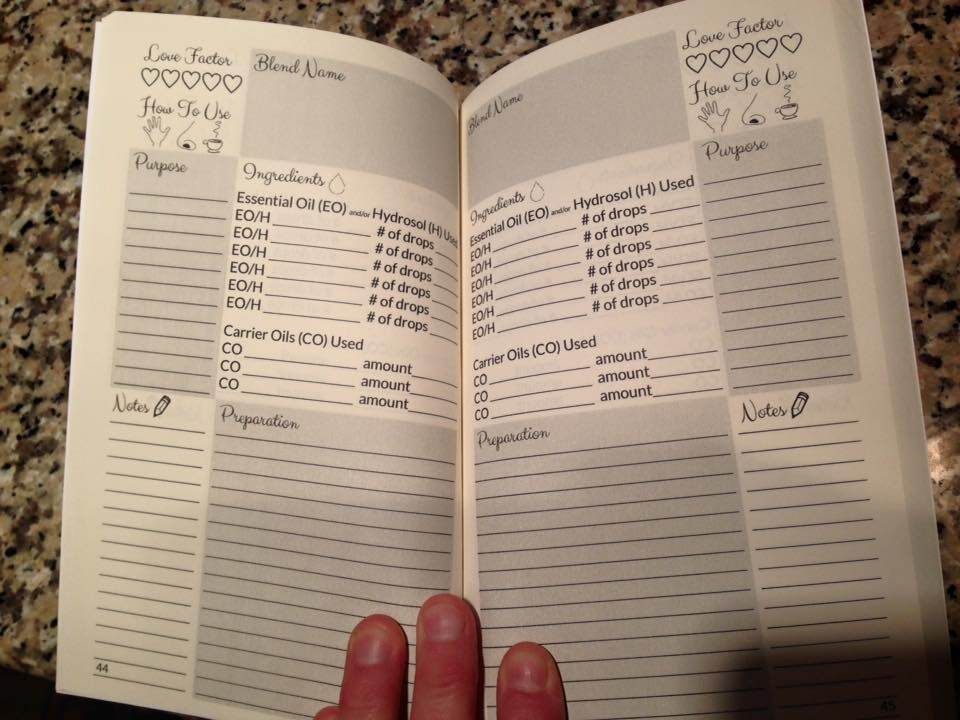 Love Factor
How To Use
Purpose
Notes
Blend Name
Ingredients
Essential Oil (EO) and/or Hydrosol (H) Used
EO/H # of drops
EO/H # of drops
EO/H # of drops
EO/H # of drops
EO/H # of drops
EO/H # of drops
Carrier Oils (CO) Used
CO amount
CO amount
CO amount
Preparation
44
Blend Name
Ingredients
Essential Oil (EO) and/or Hydrosol (H) Used
EO/H # of drops
EO/H # of drops
EO/H # of drops
EO/H # of drops
EO/H # of drops
EO/H # of drops
Carrier Oils (CO) Used
CO amount
CO amount
CO amount
Preparation
Love Factor
How To Use
Purpose
Notes
45